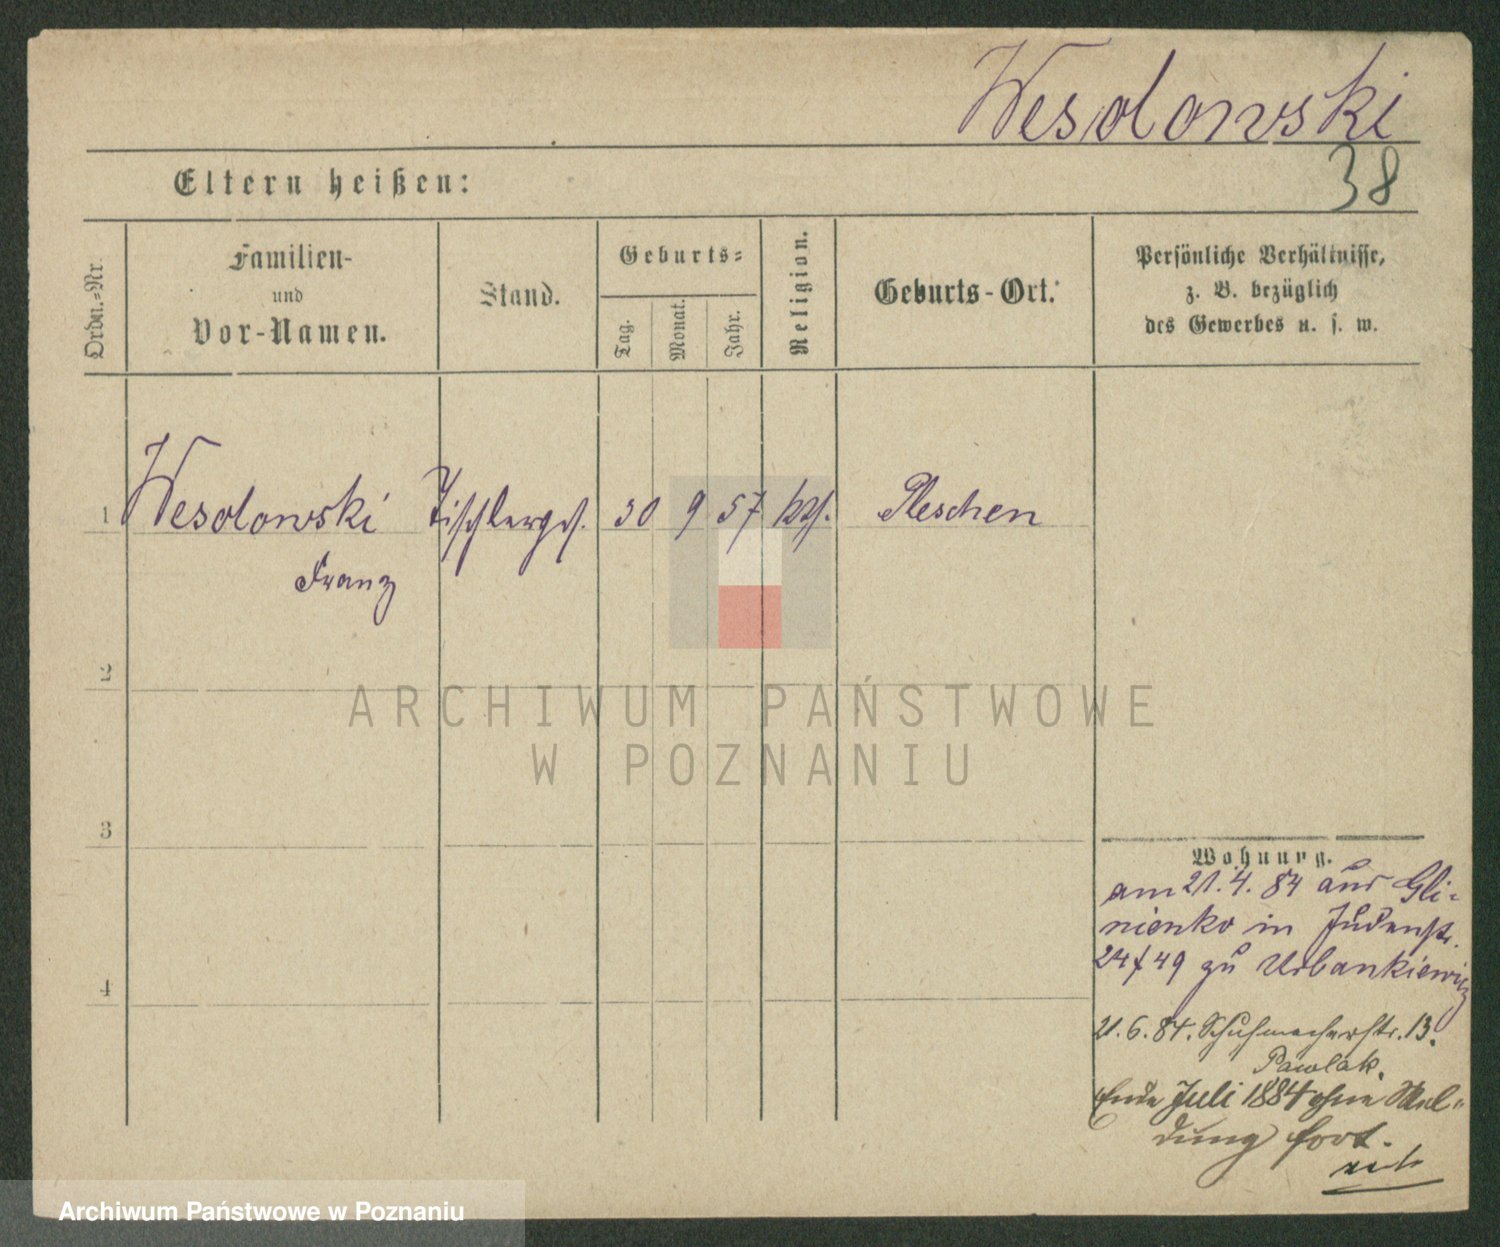 Wesolowski
38
Eltern heißen:
Ordn.=Nr.
Familien-
und
Vor-Namen.
Stand.
Geburts=
Tag.
Monat.
Jahr.
Religion.
Geburts-Ort.
Persönliche Verhältnisse,
z. B. bezüglich
des Gewerbes u. s. w.
1 Wesolowski Tischlerges. 30 9 57 kth. Pleschen
Franz
2
3
4
Wohnung.
am 21.4.84 aus Gli-
nienko in Judenstr.
24/49 zu Urbankiewicz
21.6.84. Schuhmacherstr. 13.
Pawlak.
Ende Juli 1884 ohne Mel-
dung fort.
ARCHIWUM PAŃSTWOWE
W POZNANIU
Archiwum Państwowe w Poznaniu